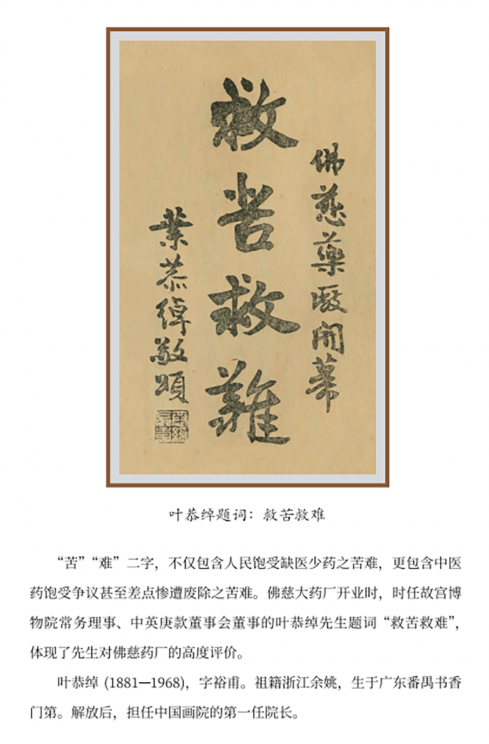 佛慈藥廠開幕
救苦救難
葉恭綽敬頌
叶恭绰题词：救苦救难
“苦”“难”二字，不仅包含人民饱受缺医少药之苦难，更包含中医
药饱受争议甚至差点惨遭废除之苦难。佛慈大药厂开业时，时任故宫博
物院常务理事、中英庚款董事会董事的叶恭绰先生题词“救苦救难”，
体现了先生对佛慈药厂的高度评价。
叶恭绰 (1881—1968)，字裕甫。祖籍浙江余姚，生于广东番禺书香
门第。解放后，担任中国画院的第一任院长。